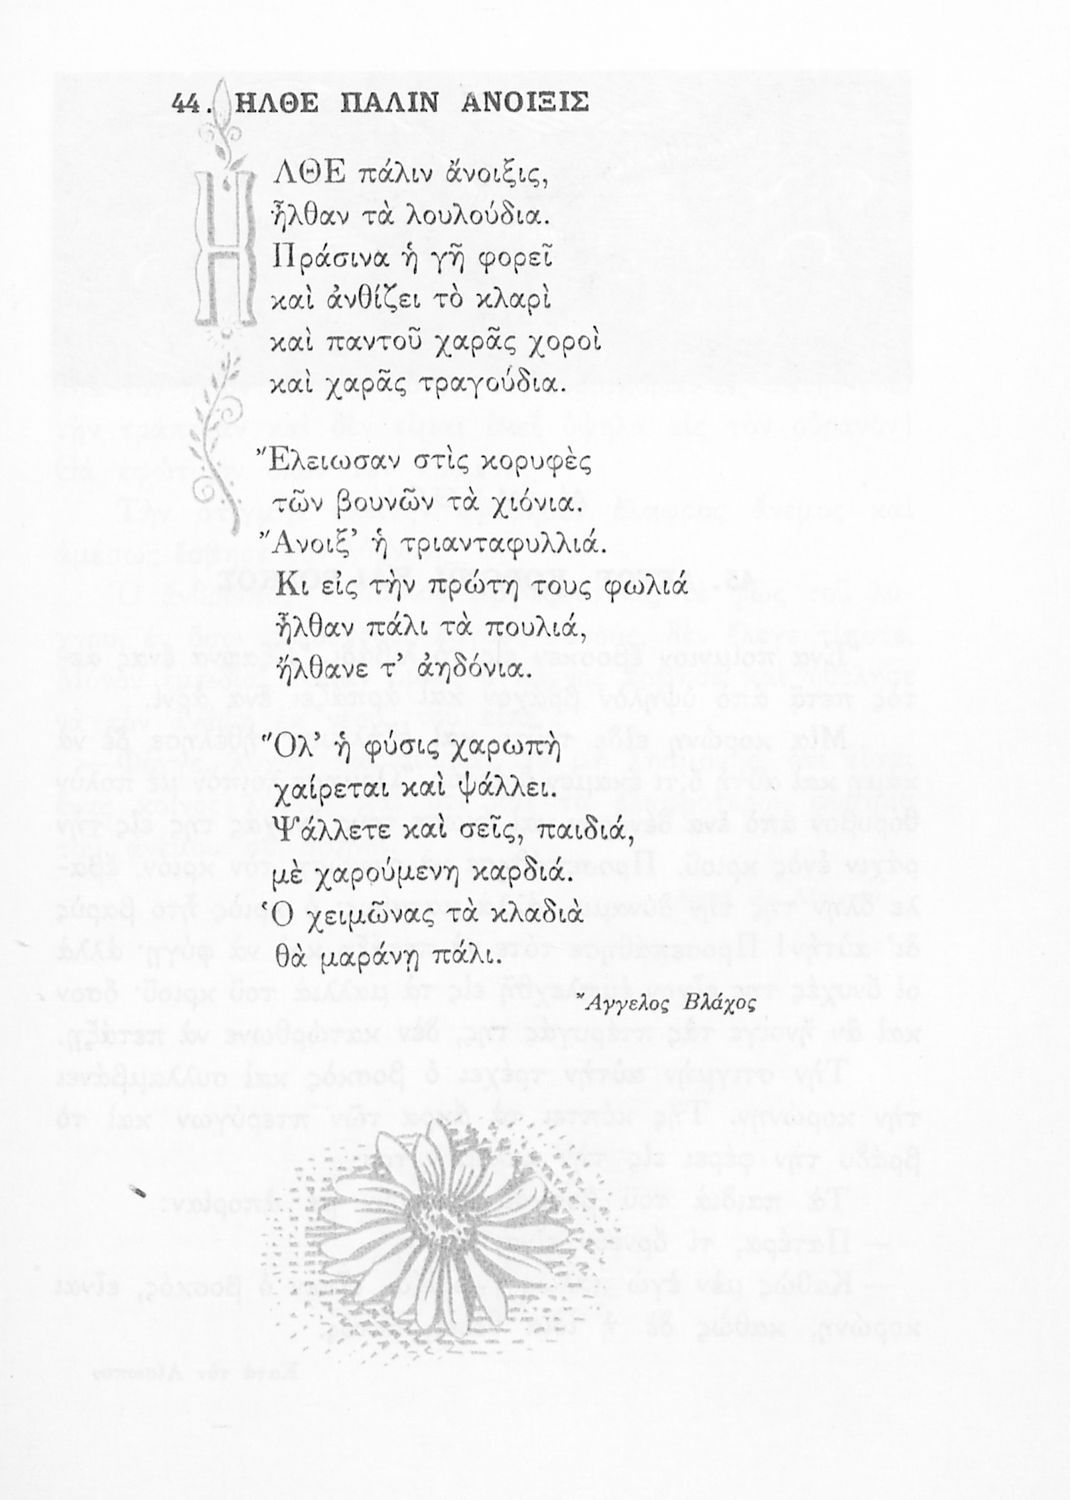 44. ΗΛΘΕ ΠΑΛΙΝ ΑΝΟΙΞΙΣ
ΗΛΘΕ πάλιν ἄνοιξις,
ἦλθαν τὰ λουλούδια.
Πράσινα ἡ γῆ φορεῖ
καὶ ἀνθίζει τὸ κλαρὶ
καὶ παντοῦ χαρᾶς χοροὶ
καὶ χαρᾶς τραγούδια.
Ἔλειωσαν στὶς κορυφὲς
τῶν βουνῶν τὰ χιόνια.
Ἄνοιξ’ ἡ τριανταφυλλιά.
Κι εἰς τὴν πρώτη τους φωλιά
ἦλθαν πάλι τὰ πουλιά,
ἤλθανε τ’ ἀηδόνια.
Ὅλ’ ἡ φύσις χαρωπὴ
χαίρεται καὶ ψάλλει.
Ψάλλετε καὶ σεῖς, παιδιά,
μὲ χαρούμενη καρδιά.
Ὁ χειμῶνας τὰ κλαδιὰ
θὰ μαράνῃ πάλι.
Ἄγγελος Βλάχος